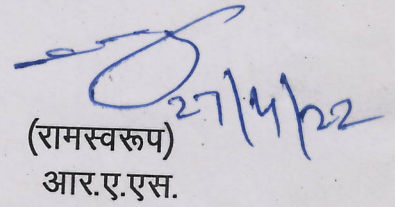 27/4/22
(रामस्वरूप)
आर.ए.एस.